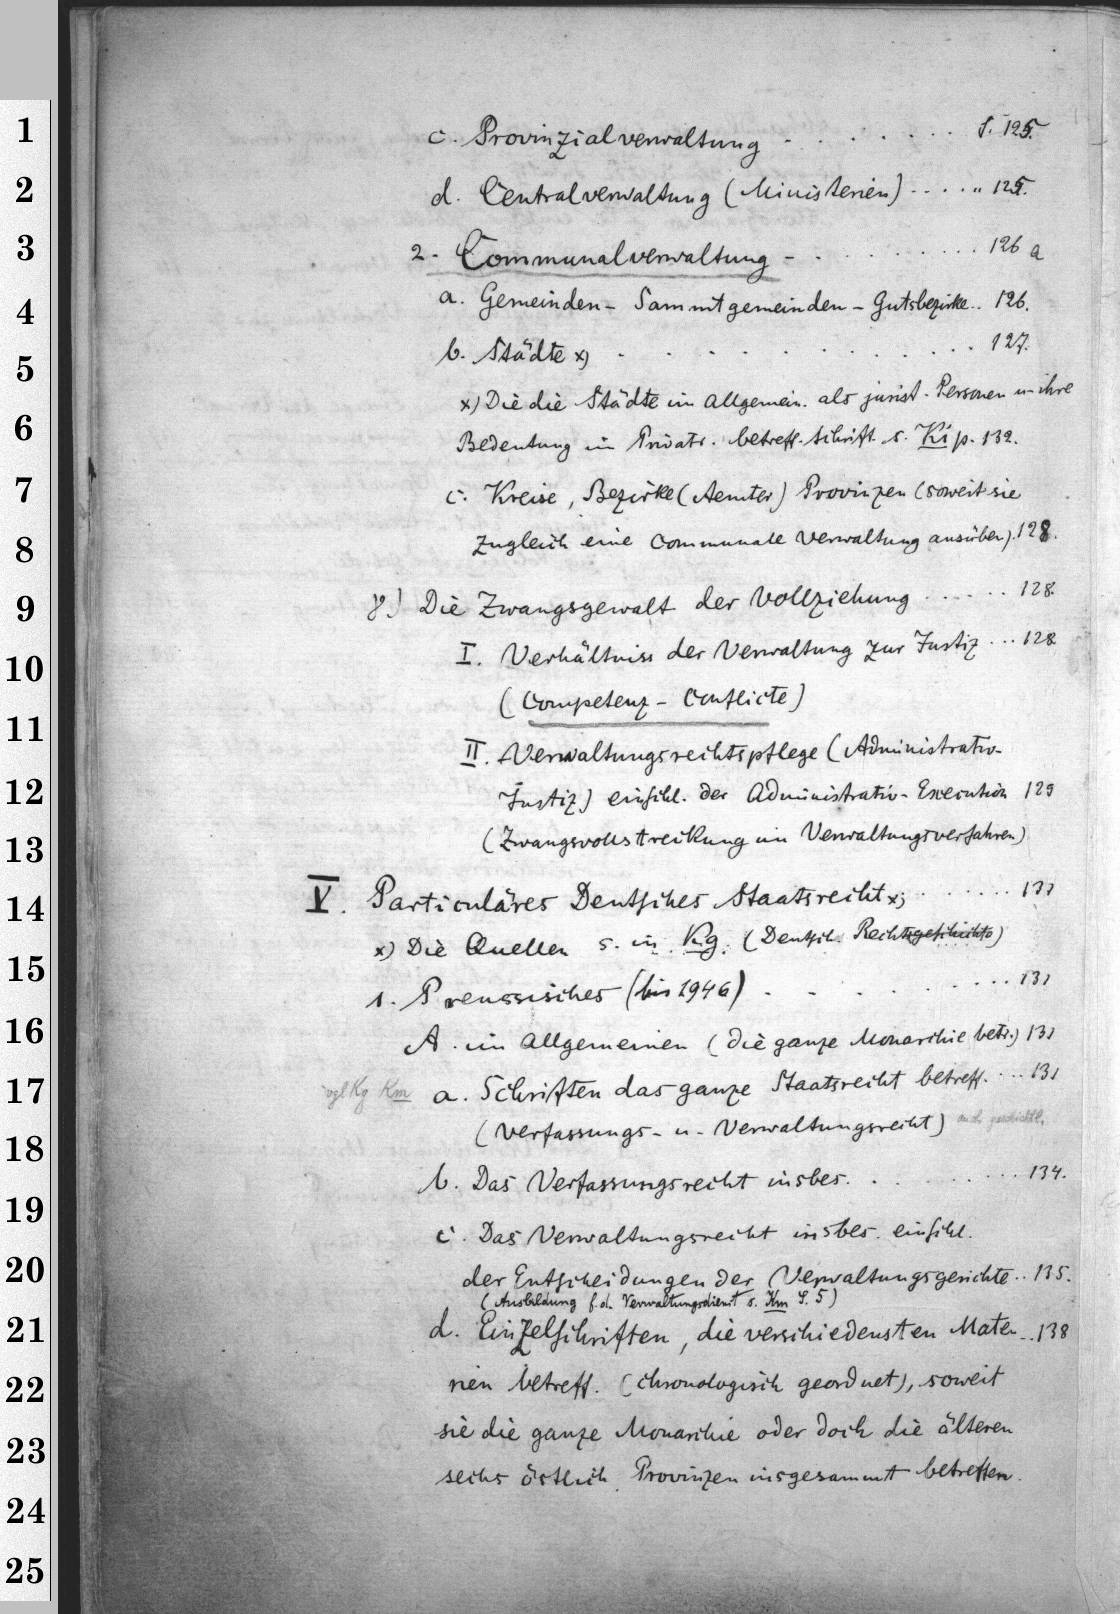 c. Provinzialverwaltung - . . . . . . . . S. 125.
d. Centralverwaltung (Ministerien) . . . . „ 125.
2. Communalverwaltung - . . . . . . . . . 126 a
a. Gemeinden - Sammtgemeinden - Gutsbezirke.. 126.
b. Städte x) . . . . . . . . . . . 127.
x) Die die Städte im Allgemein. als jurist. Personen u. ihre
Bedeutung im Privatr. betreff. Schrift. s. Ki p. 132.
c. Kreise, Bezirke (Aemter) Provinzen (soweit sie
zugleich eine communale Verwaltung ausüben). 128.
γ.) Die Zwangsgewalt der Vollziehung . . . . . . 128.
I. Verhältniss der Verwaltung zur Justiz . . . 128
(Competenz - Conflicte)
II. Verwaltungsrechtspflege (Administrativ-
Justiz) einschl. der Administrativ-Execution 129
(Zwangsvollstreckung im Verwaltungsverfahren)
V. Particuläres Deutsches Staatsrecht x) . . . . . . . 131
x) Die Quellen s. in Kg. (Deutsch. Rechtsgeschichte)
1. Preussisches (bis 1946) . . . . . . . . . 131
A. im Allgemeinen (die ganze Monarchie betr.) 131
vgl Kg Km a. Schriften das ganze Staatsrecht betreff. . . . 131
(Verfassungs- u. Verwaltungsrecht) auch geschichtl.
b. Das Verfassungsrecht insbes. . . . . . . . 134.
c. Das Verwaltungsrecht insbes. einschl.
der Entscheidungen der Verwaltungsgerichte . . 135.
(Ausbildung f. d. Verwaltungsdienst s. Km S. 5)
d. Einzelschriften, die verschiedensten Mate- .. 138
rien betreff. (chronologisch geordnet), soweit
sie die ganze Monarchie oder doch die älteren
sechs östlich. Provinzen insgesammt betreffen.
1
2
3
4
5
6
7
8
9
10
11
12
13
14
15
16
17
18
19
20
21
22
23
24
25